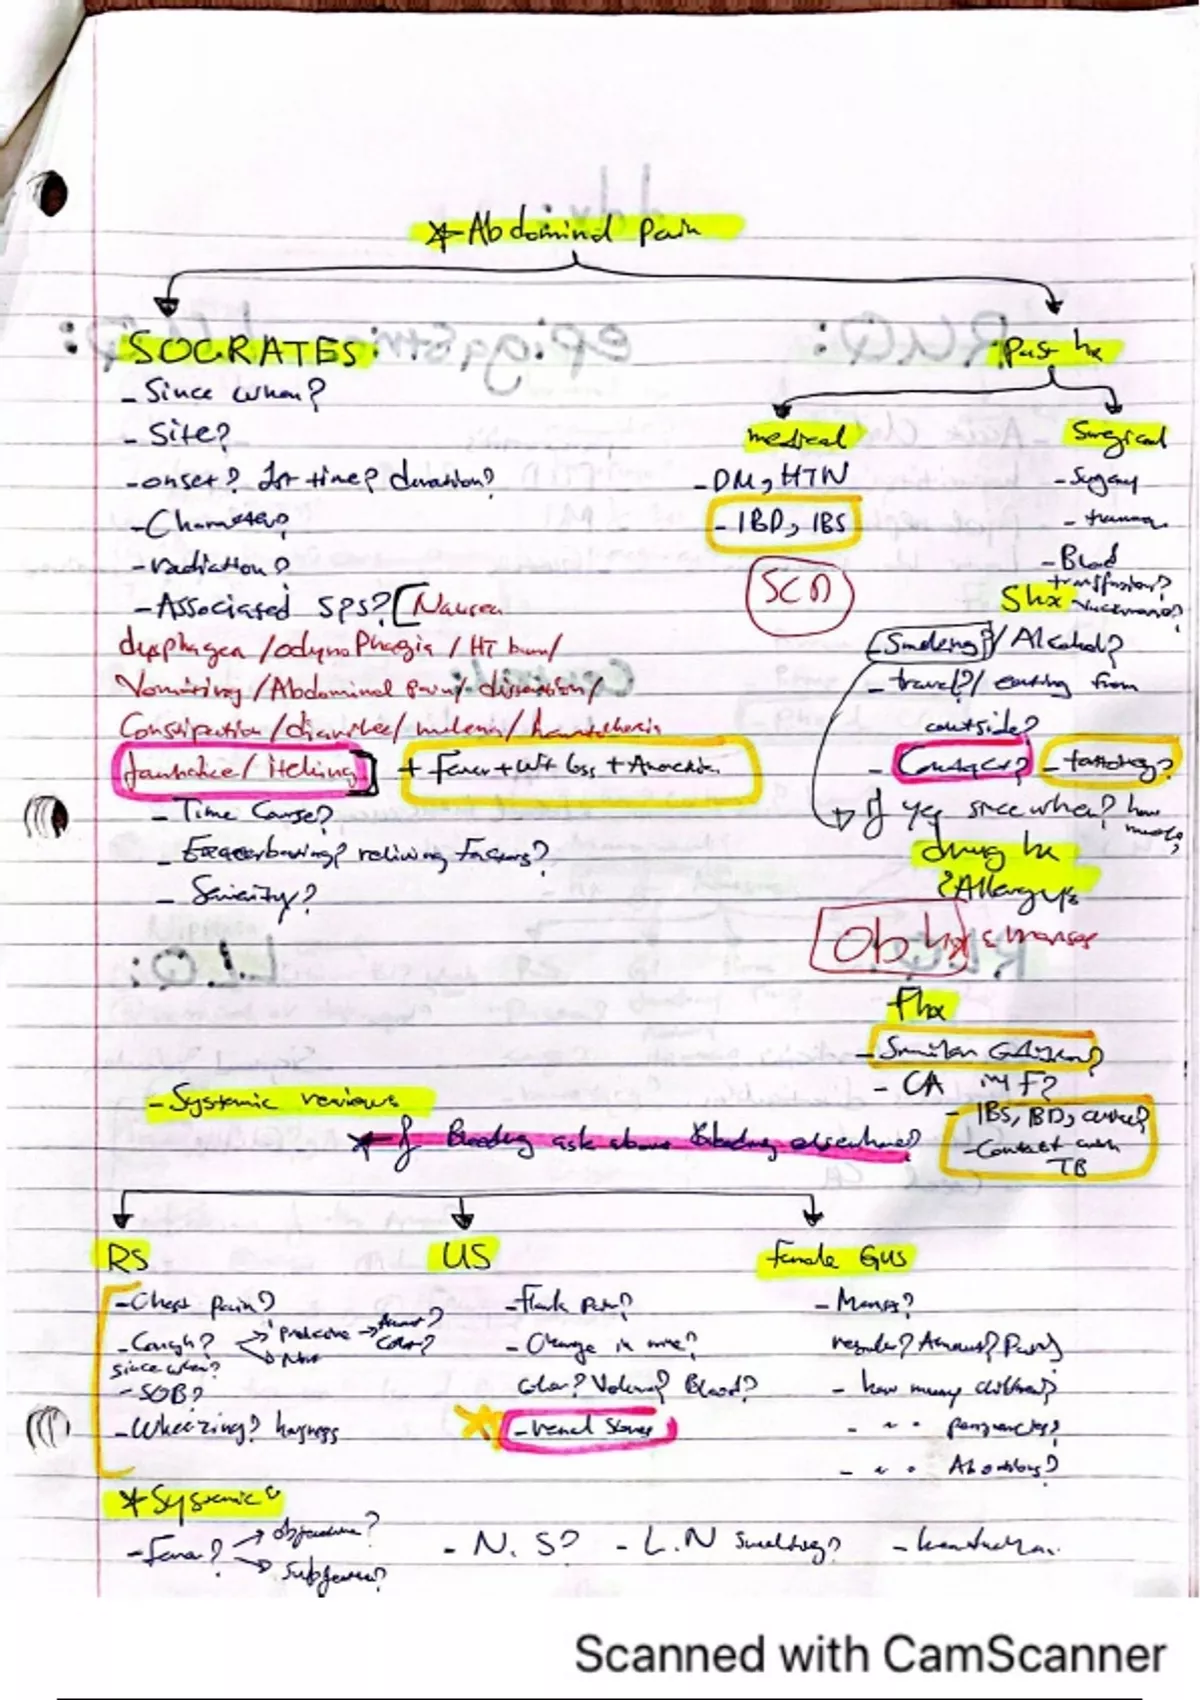 * Abdominal pain
SOCRATES:
- Since when?
- Site?
- onset? 1st time? duration?
- Character?
- radiation?
- Associated sps? [Nausea
dysphagea / odynophagia / HT burn/
Vomiting / Abdominal pain/ distension/
Constipation / diarrhea/ melena/ hematochezia
Jaundice / itching] + Fever + wt loss + Anorexia
- Time Course?
- Exacerbating? reliving Factors?
- Severity?
past hx
medical
- DM, HTN
- IBD, IBS
SCD
Surgical
- Sugery
- trauma
- Blood
transfusion?
Shx
Smoking? / Alcohol?
- travel? / eating from
outside?
- Contact? - tattoing?
If yes since when? how
much?
drug hx
? Allergys
Ob hx & menses
Fhx
- Similar Condition?
- CA in F?
- IBS, IBD,
- Contact with
TB
- Systemic reviews
* if Bleeding ask about Bleeding elsewhere?
RS
- Chest pain?
- Cough? → Productive → Amount?
Color?
→ Not
since when?
- SOB?
- Wheezing?
US
- Flank pain?
- Change in urine?
Color? Volume? Blood?
- renal stones
female GUS
- Menses?
regular? Amount? Pain?
- how many children?
- " " pregnancies?
- " " Abortions?
* Systemic:
- Fever? → objective?
→ subjective?
- N.S? - L.N swelling?
Scanned with CamScanner